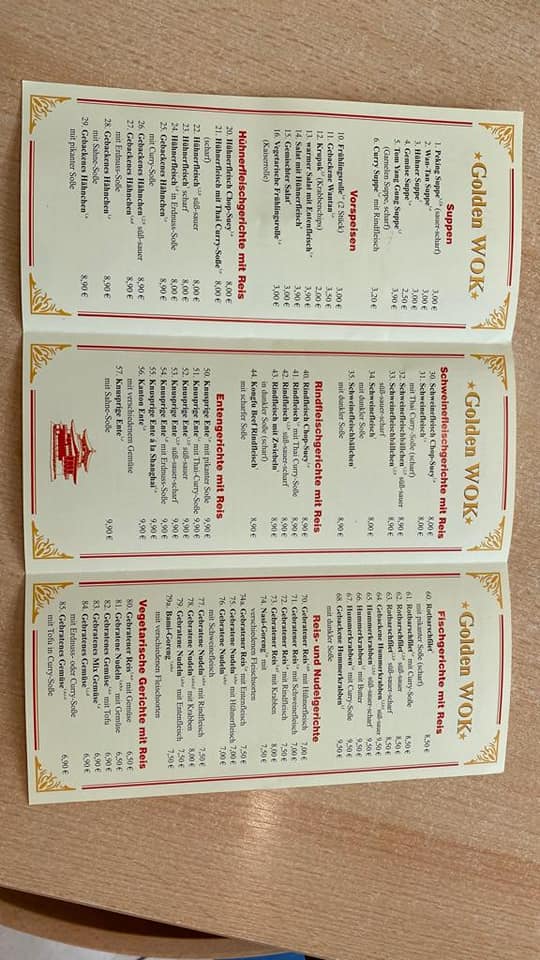 Golden WOK
Suppen
1. Peking Suppe (sauer-scharf) 3,00 €
2. Wan-Tan Suppe 3,00 €
3. Hühner Suppe 3,00 €
4. Gemüse Suppe 2,50 €
5. Tom Yang Gung Suppe 3,90 €
(Garnelen Suppe, scharf)
6. Curry Suppe mit Rindfleisch 3,20 €
Vorspeisen
10. Frühlingsrolle (2 Stück) 3,00 €
11. Gebackene Wantan 3,50 €
12. Kropuk (Krabbenchips) 2,00 €
13. warmer Salad mit Entenfleisch 3,90 €
14. Salat mit Hühnerfleisch 3,90 €
15. Gemischter Salat 3,00 €
16. Vegetarische Frühlingsrolle 3,00 €
(Kaiserrolle)
Hühnerfleischgerichte mit Reis
20. Hühnerfleisch Chop-Suey 8,00 €
21. Hühnerfleisch mit Thai Curry-Soße 8,00 €
(scharf)
22. Hühnerfleisch süß-sauer 8,00 €
23. Hühnerfleisch scharf 8,00 €
24. Hühnerfleisch in Erdnuss-Soße 8,00 €
25. Gebackenes Hähnchen 8,90 €
mit Curry-Soße
26. Gebackenes Hähnchen süß-sauer 8,90 €
27. Gebackenes Hähnchen 8,90 €
mit Erdnuss-Soße
28. Gebackenes Hähnchen 8,90 €
mit Sahne-Soße
29. Gebackenes Hähnchen 8,90 €
mit pikanter Soße
Golden WOK
Schweinefleischgerichte mit Reis
30. Schweinefleisch Chop-Suey 8,00 €
31. Schweinefleisch 8,00 €
mit Thai Curry-Soße (scharf)
32. Schweinefleischbällchen süß-sauer 8,90 €
33. Schweinefleischbällchen 8,90 €
süß-sauer-scharf
34. Schweinefleisch 8,00 €
mit dunkler Soße
35. Schweinefleischbällchen 8,90 €
mit dunkler Soße
Rindfleischgerichte mit Reis
40. Rindfleisch Chop-Suey 8,90 €
41. Rindfleisch mit Thai Curry-Soße 8,90 €
42. Rindfleisch süß-sauer-scharf 8,90 €
43. Rindfleisch mit Zwiebeln 8,90 €
in dunkler Soße (scharf)
44. Kongfu Beef Rindfleisch 8,90 €
mit scharfer Soße
Entengerichte mit Reis
50. Knusprige Ente mit pikanter Soße 9,90 €
51. Knusprige Ente mit Thai-Curry-Soße 9,90 €
52. Knusprige Ente süß-sauer 9,90 €
53. Knusprige Ente süß-sauer-scharf 9,90 €
54. Knusprige Ente mit Erdnuss-Soße 9,90 €
55. Knusprige Ente á la Shanghai 9,90 €
56. Kanton Ente 9,90 €
mit verschiedenem Gemüse
57. Knusprige Ente 9,90 €
mit Sahne-Soße
Golden WOK
Fischgerichte mit Reis
60. Rotbarschfilet 8,50 €
mit pikanter Soße (scharf)
61. Rotbarschfilet mit Curry-Soße 8,50 €
62. Rotbarschfilet süß-sauer 8,50 €
63. Rotbarschfilet süß-sauer-scharf 8,50 €
64. Gebackene Hummerkrabben süß-sauer 9,50 €
65. Hummerkrabben süß-sauer-scharf 9,50 €
66. Hummerkrabben mit Butter 9,50 €
67. Hummerkrabben mit Curry-Soße 9,50 €
68. Gebackene Hummerkrabben 9,50 €
mit dunkler Soße
Reis- und Nudelgerichte
70. Gebratener Reis mit Hühnerfleisch 7,00 €
71. Gebratener Reis mit Schweinefleisch 7,00 €
72. Gebratener Reis mit Rindfleisch 7,50 €
73. Gebratener Reis mit Krabben 8,00 €
74. Nasi-Goreng mit 7,50 €
verschiedenen Fleischsorten
74a. Gebratener Reis mit Entenfleisch 7,50 €
75. Gebratene Nudeln mit Hühnerfleisch 7,00 €
76. Gebratene Nudeln 7,00 €
mit Schweinefleisch
77. Gebratene Nudeln mit Rindfleisch 7,50 €
78. Gebratene Nudeln mit Krabben 8,00 €
79. Gebratene Nudeln mit Entenfleisch 7,50 €
79a. Bami-Goreng 7,50 €
mit verschiedenen Fleischsorten
Vegetarische Gerichte mit Reis
80. Gebratener Reis mit Gemüse 6,50 €
81. Gebratene Nudeln mit Gemüse 6,50 €
82. Gebratenes Gemüse mit Tofu 6,90 €
83. Gebratenes Mix Gemüse 6,90 €
84. Gebratenes Gemüse 6,90 €
mit Erdnuss- oder Curry-Soße
85. Gebratenes Gemüse 6,90 €
mit Tofu in Curry-Soße